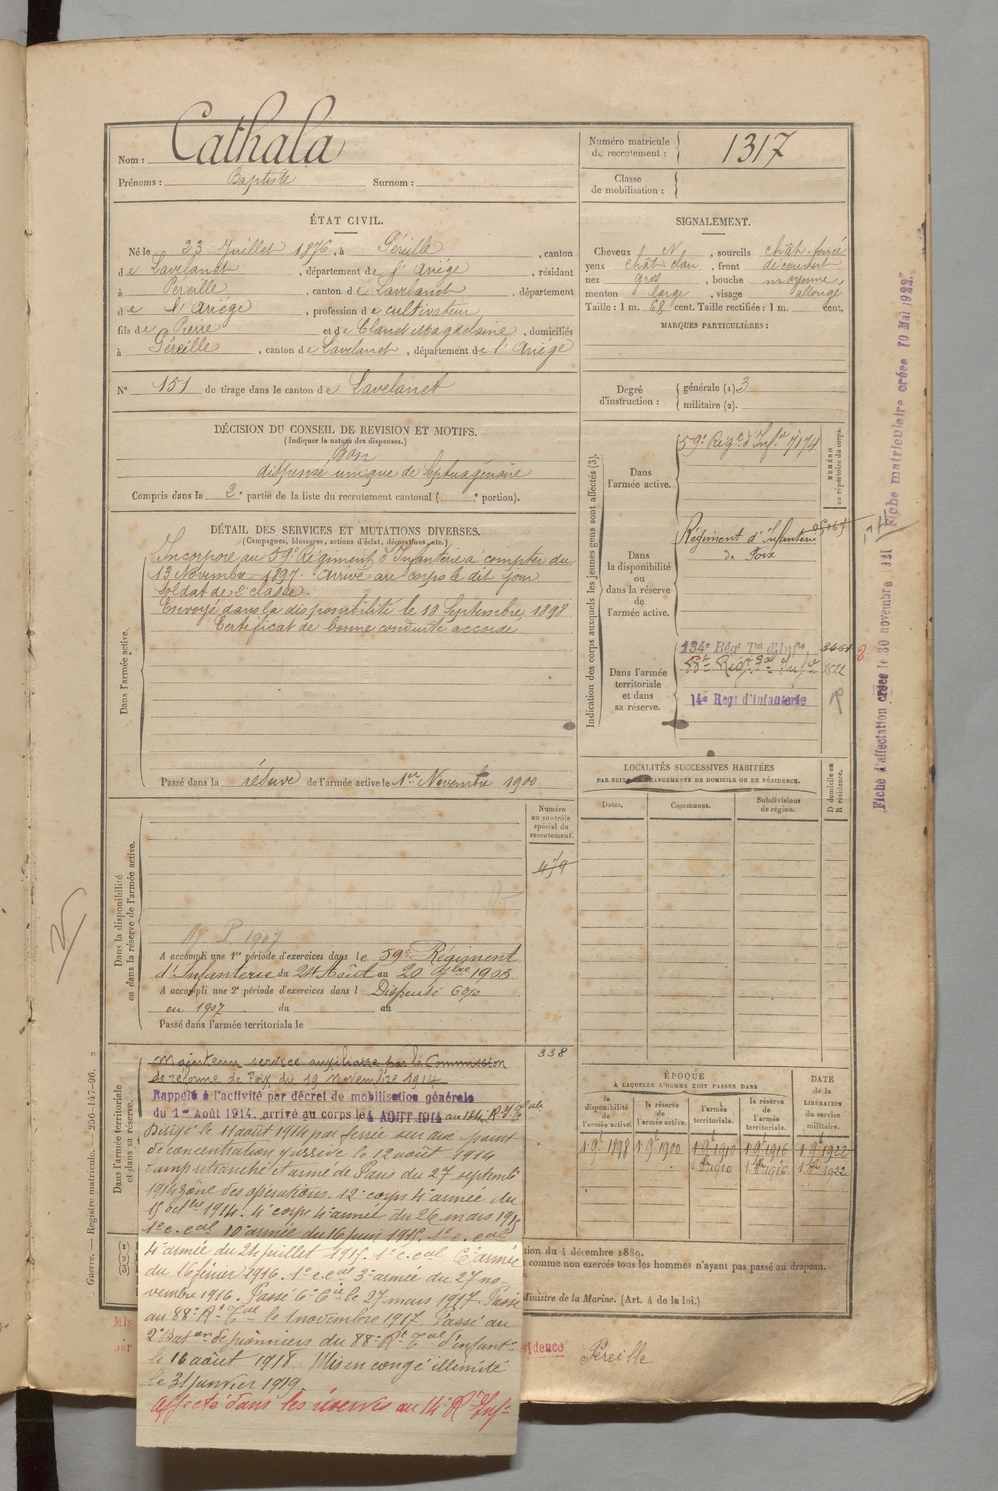 Nom : Cathala
Prénoms : Baptiste Surnom :
Numéro matricule du recrutement : 1317
Classe de mobilisation :
ÉTAT CIVIL.
Né le 23 Juillet 1876, à Péreille, canton
de Lavelanet, département de l'Ariége, résidant
à Pereille, canton de Lavelanet, département
de l'Ariége, profession de cultivateur
fils de Pierre et de Claret Magdelaine, domiciliés
à Péreille, canton de Lavelanet, département de l'Ariége
N° 151 de tirage dans le canton de Lavelanet
SIGNALEMENT.
Cheveux N, sourcils chât. foncé
yeux chât clair, front découvert
nez gros, bouche moyenne,
menton large, visage allongé
Taille : 1 m. 68 cent. Taille rectifiée : 1 m. cent.
MARQUES PARTICULIÈRES :
Degré d'instruction : générale (1) 3
militaire (2).
DÉCISION DU CONSEIL DE REVISION ET MOTIFS.
(Indiquer la nature des dispenses.)
Bon
dispense unique de septuagénaire
Compris dans la 2e partie de la liste du recrutement cantonal ( e portion).
DÉTAIL DES SERVICES ET MUTATIONS DIVERSES.
(Campagnes, blessures, actions d'éclat, décorations, etc.)
Dans l'armée active.
Incorporé au 59e Régiment d'Infanterie à compter du
13 Novembre 1897. Arrivé au corps le dit jour
Soldat de 2e classe.
Envoyé dans la disponibilité le 18 Septembre 1898
Certificat de bonne conduite accordé
Passé dans la réserve de l'armée active le 1er Novembre 1900
Indication des corps auxquels les jeunes gens sont affectés (3).
NUMÉRO au répertoire du corps.
Dans l'armée active.
59e Régt d'Infie 7174
Dans la disponibilité ou dans la réserve de l'armée active.
Régiment d'Infanterie
de Foix
Dans l'armée territoriale et dans sa réserve.
134e Régt Tal d'Infie
14e Régt d'Infanterie
Fiche matriculaire créée 10 Mai 1922.
Fiche d'affectation créée le 30 novembre 121
LOCALITÉS SUCCESSIVES HABITÉES
PAR SUITE DE CHANGEMENTS DE DOMICILE OU DE RÉSIDENCE.
Dates. Communes. Subdivisions de région. D domicile ou R résidence.
Dans la disponibilité ou dans la réserve de l'armée active.
Numéro au contrôle spécial du recrutement.
P. 1907
A accompli une 1re période d'exercices dans le 59e Régiment
d'Infanterie du 24 Août au 20 7bre 1903
A accompli une 2e période d'exercices dans l Dispensé
en 1907 du au
Passé dans l'armée territoriale le
338
Dans l'armée territoriale et dans sa réserve.
Maintenu service auxiliaire par la Commission
de réforme de Foix du 19 novembre 1914
Rappelé à l'activité par décret de mobilisation générale
du 1er Août 1914. arrivé au corps le 4 AOUT 1914 au 134e R.I.Tale
Dirigé le 11 août 1914 par ferrée sur point
de concentration y arrive le 12 août 1914
Camp retranché et armé de Paris du 27 septembe
1914 zône des opérations. 12e corps 4e armée du
15 octbre 1914. 4e corps 4e armée du 26 mars 1915
1e c. cal 10e armée du 16 juin 1915. 1e c. cal
4e armée du 24 juillet 1915. 1e c. cal 6e armée
du 16 février 1916. 1e c. cal 3e armée du 27 no-
vembre 1916. Passé 6e Cie le 27 mars 1917. Passé
au 88e Rt Tal le 1 novembre 1917. Passé au
2e Baton de pionniers du 88e Rt Tal d'Infante
le 16 août 1918. Mis en congé illimité
le 31 janvier 1919
affecté dans les réserves au 14e Rt Infe
ÉPOQUE
À LAQUELLE L'HOMME DOIT PASSER DANS
la disponibilité de l'armée active. la réserve de l'armée active. l'armée territoriale. la réserve de l'armée territoriale.
DATE de la LIBÉRATION du service militaire.
1 9e 1898 1 9e 1900 1 9e 1910 1 9e 1916 1 9e 1922
1 8re 1910 1 8re 1916 1 8re 1922
tion du 4 décembre 1889.
comme non exercés tous les hommes n'ayant pas passé au drapeau.
Ministre de la Marine. (Art. 4 de la loi.)
sidence Péreille
Guerre. — Registre matricule. — 256-147-96.